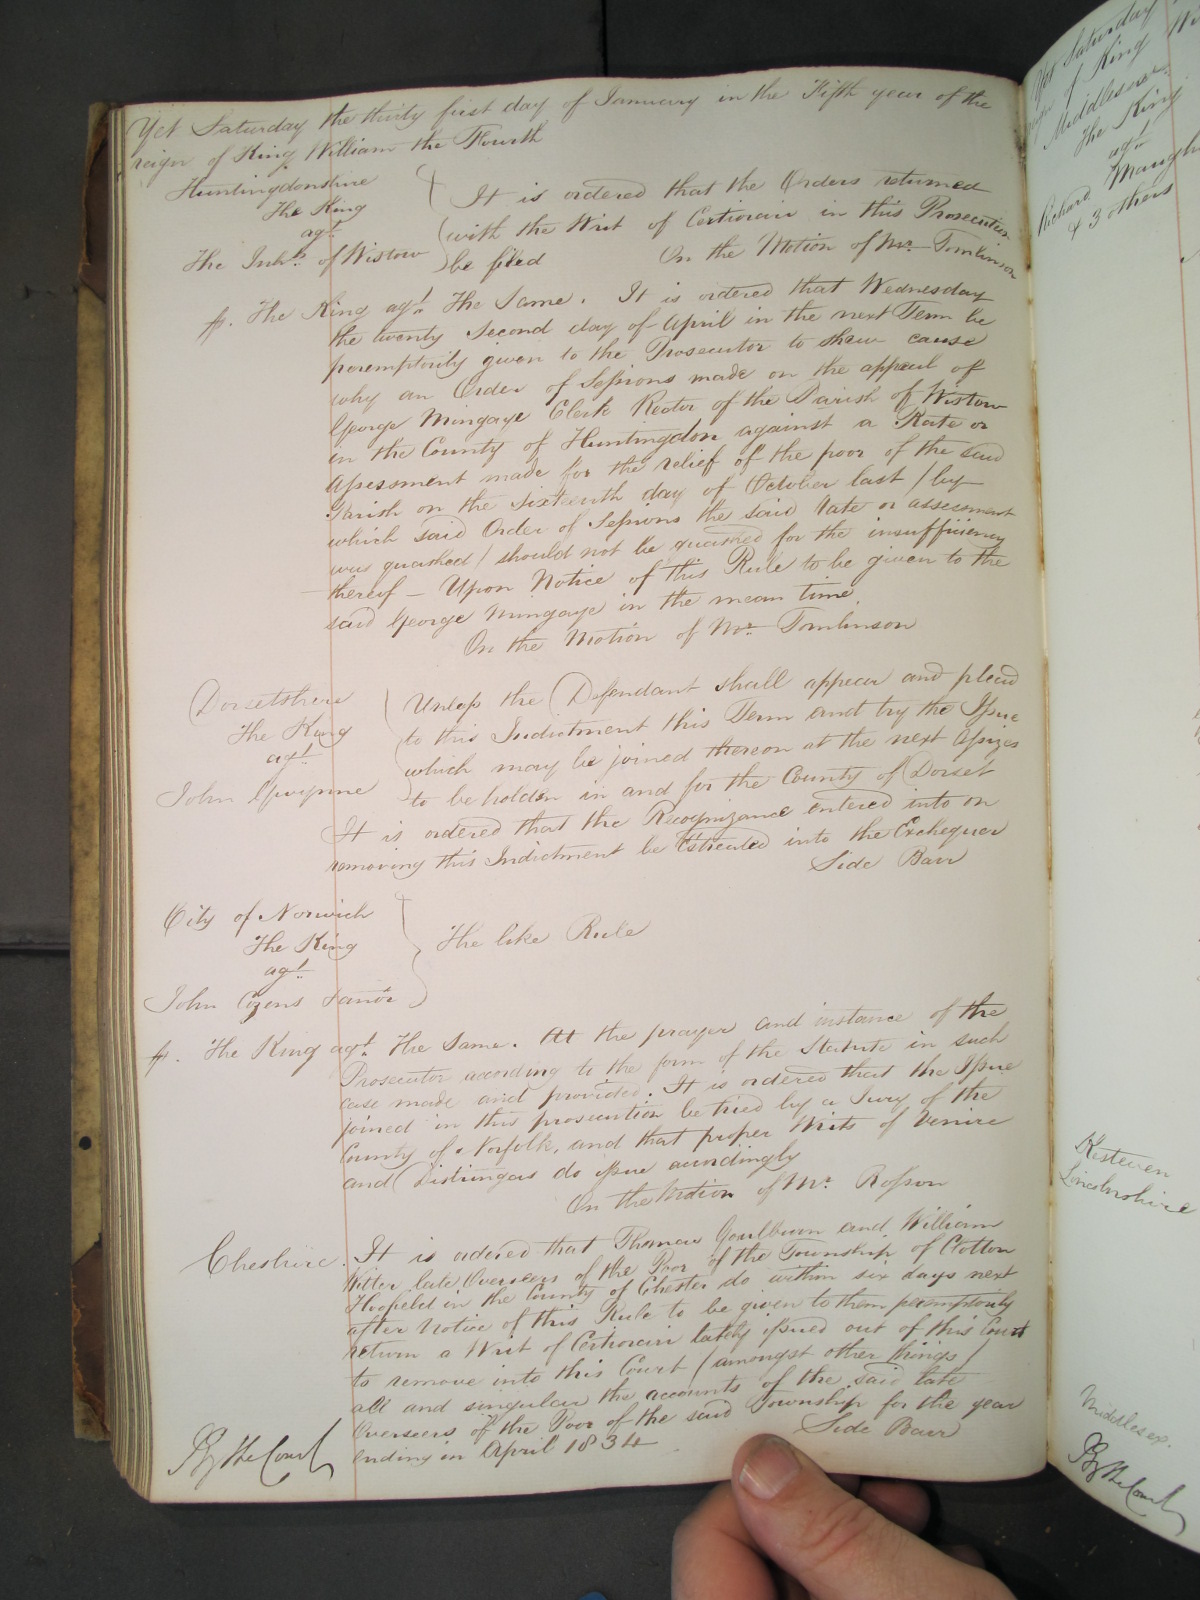 Yet Saturday the thirty first day of January in the Fifth year of the
reign of King William the Fourth
Huntingdonshire
The King
agt.
The Inhts. of Wistow
It is ordered that the Orders returned
with the Writ of Certiorari in this Prosecution
be filed On the Motion of Mr. Tomlinson
The King agt. The Same. It is ordered that Wednesday
the twenty second day of April in the next Term be
peremptorily given to the Prosecutor to shew cause
why an Order of Sessions made on the appeal of
George Mingaye Clerk Rector of the Parish of Wistow
in the County of Huntingdon against a Rate or
Assessment made for the relief of the poor of the said
Parish on the sixteenth day of October last / by
which said Order of Sessions the said Rate or assessment
was quashed / should not be quashed for the insufficiency
thereof – Upon Notice of this Rule to be given to the
said George Mingaye in the mean time.
On the Motion of Mr. Tomlinson
Dorsetshire
The King
agt.
John Gwynne
Unless the Defendant shall appear and plead
to this Indictment this Term and try the Issue
which may be joined thereon at the next Assizes
to be holden in and for the County of Dorset
It is ordered that the Recognizance entered into on
removing this Indictment be Estreated into the Exchequer
Side Barr
City of Norwich
The King
agt.
John Cozens
The like Rule
The King agt. The Same. At the prayer and instance of the
Prosecutor according to the form of the Statute in such
case made and provided. It is ordered that the Issue
joined in this prosecution be tried by a Jury of the
County of Norfolk, and that proper Writs of Venire
and Distringas do issue accordingly
On the Motion of Mr. Rosson
Cheshire. It is ordered that Thomas Goulburn and William
Witter late Overseers of the Poor of the Township of Clotton
Hoofield in the County of Chester do within six days next
after Notice of this Rule to be given to them peremptorily
return a Writ of Certiorari lately issued out of this Court
to remove into this Court / amongst other things /
all and singular the accounts of the said late
Overseers of the Poor of the said Township for the year
ending in April 1834
Side Barr
By the Court
Yet Saturday
reign of King
Middlesex
The King
agt.
Richard
& 3 others
Kesteven
Lincolnshire
Middlesex.
By the Court